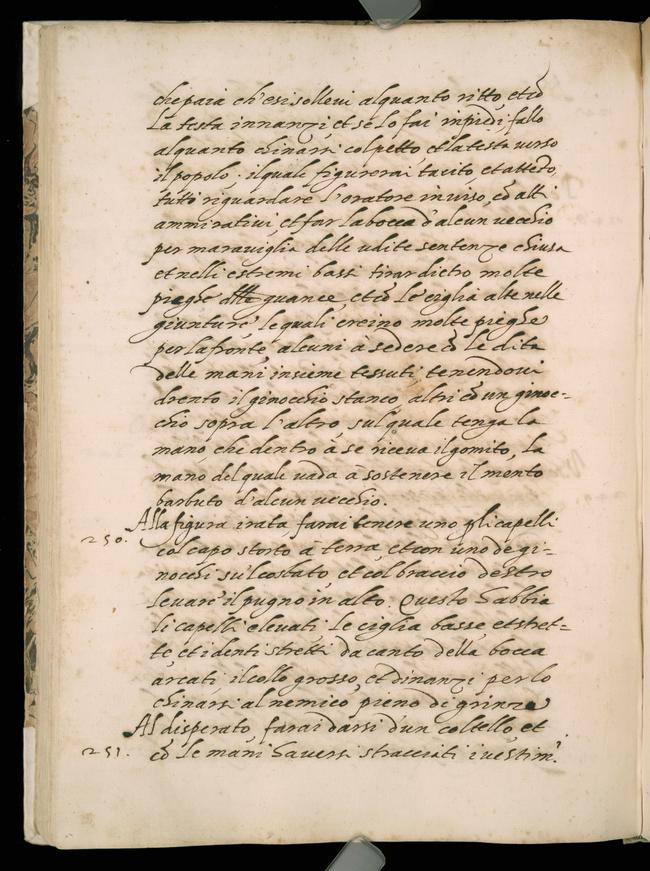 che paia ch'esi sollevi alquanto ritto, et cō
la testa innanzi et se lo fai inpiedi, fallo
alquanto chinarsi col petto et la testa verso
il popolo. il quale figurerai tacito et atteto,
tutti riguardare l'oratore in viso, cō atti
ammirativi, et far la bocca d'alcun vecchio
per maraviglia delle udite sentenze chiusa
et nelli estremi bassi tirar dietro molte
pieghe guance, et cō le ciglia alte nelle
giunture le quali creino molte pieghe
per la fronte, alcuni à sedere cō le dita
delle mani insieme tessuti, tenendovi
drento il ginocchio stanco, altri cō un ginoc=
chio sopra l'altro, sul quale tenga la
mano che dentro à se riceva il gomito, la
mano del quale vada à sostenere il mento
barbuto d'alcun vecchio.
Alla figura irata farai tenere uno p̱ li capelli
250. col capo storto à terra, et con uno de gi-
nocchi sul costato, et col braccio destro
levare il pugno in alto. Questo habbia
li capelli elevati le ciglia basse et stret=
te et i denti stretti da canto della bocca
arcati il collo grosso, et dinanzi per lo
chinarsi al nemico, pieno di grinze
Al disperato, farai darsi d'un coltello, et
251. cō le mani haversi stracciati i vestim.ⁱ